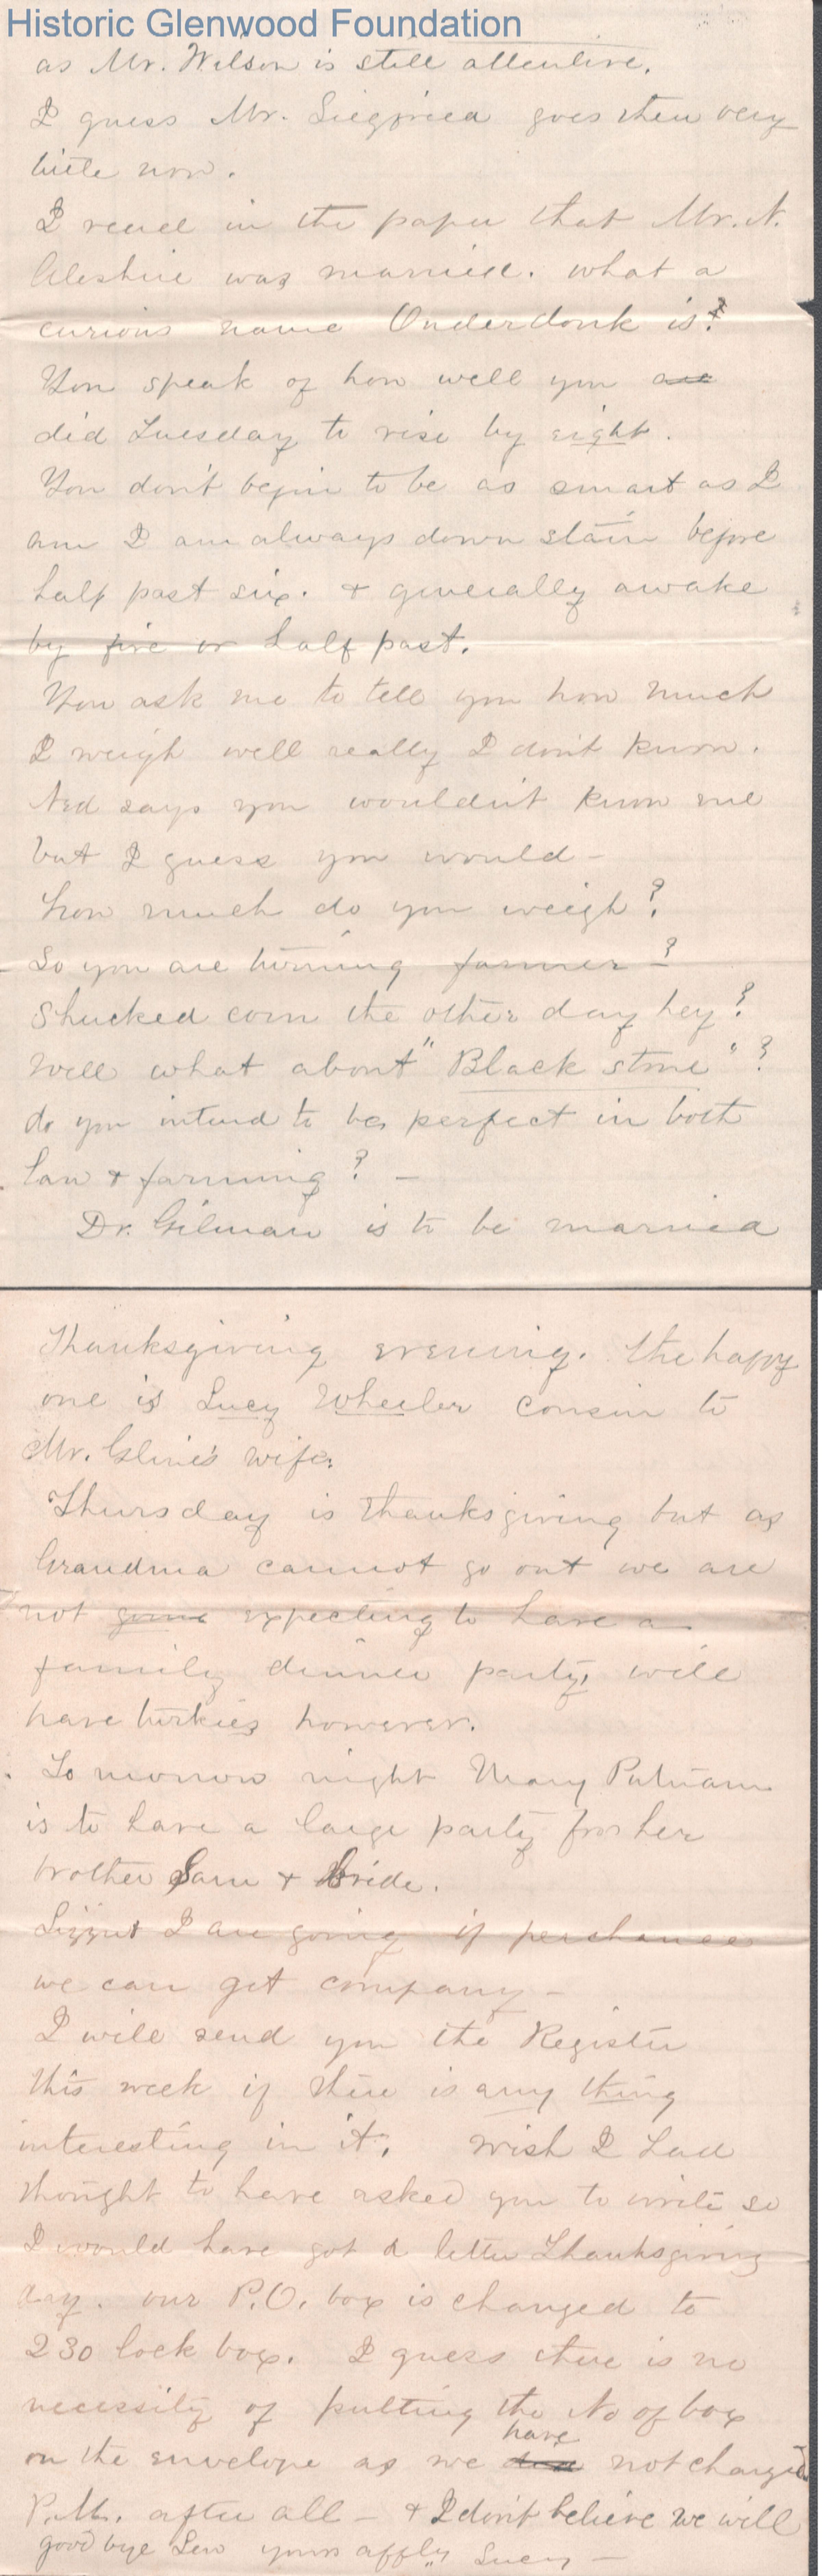 Historic Glenwood Foundation
as Mr. Wilson is still attentive.
I guess Mr. Siegfried goes there very
little now.
I read in the paper that Mr. N.
Aleshire was married. what a
curious name Onderdonk is?
You speak of how well you are
did Tuesday to rise by eight.
You don't begin to be as smart as I
am I am always down stairs before
half past six. & generally awake
by five or half past.
You ask me to tell you how much
I weigh well really I don't know.
Ned says you wouldn't know me
but I guess you would –
how much do you weigh?
So you are turning farmer?
Shucked corn the other day hey?
Well what about "Black stone"?
do you intend to be perfect in both
law & farming? –
Dr. Gilman is to be married
Thanksgiving evening. the happy
one is Lucy Wheeler cousin to
Mr. Cline's wife.
Thursday is thanksgiving but as
Grandma cannot go out we are
not going expecting to have a
family dinner party, will
have turkies however.
To morrow night Mary Putnam
is to have a large party for her
brother Sam & Bride.
Lizzie & I are going if perchance
we can get company –
I will send you the Register
this week if there is any thing
interesting in it. wish I had
thought to have asked you to write so
I would have got a letter Thanksgiving
day. our P.O. box is changed to
230 lock box. I guess there is no
necessity of putting the No of box
have
on the envelope as we not changed
P.M. after all – & I don't believe we will
good bye Lew yours affly Lucy –